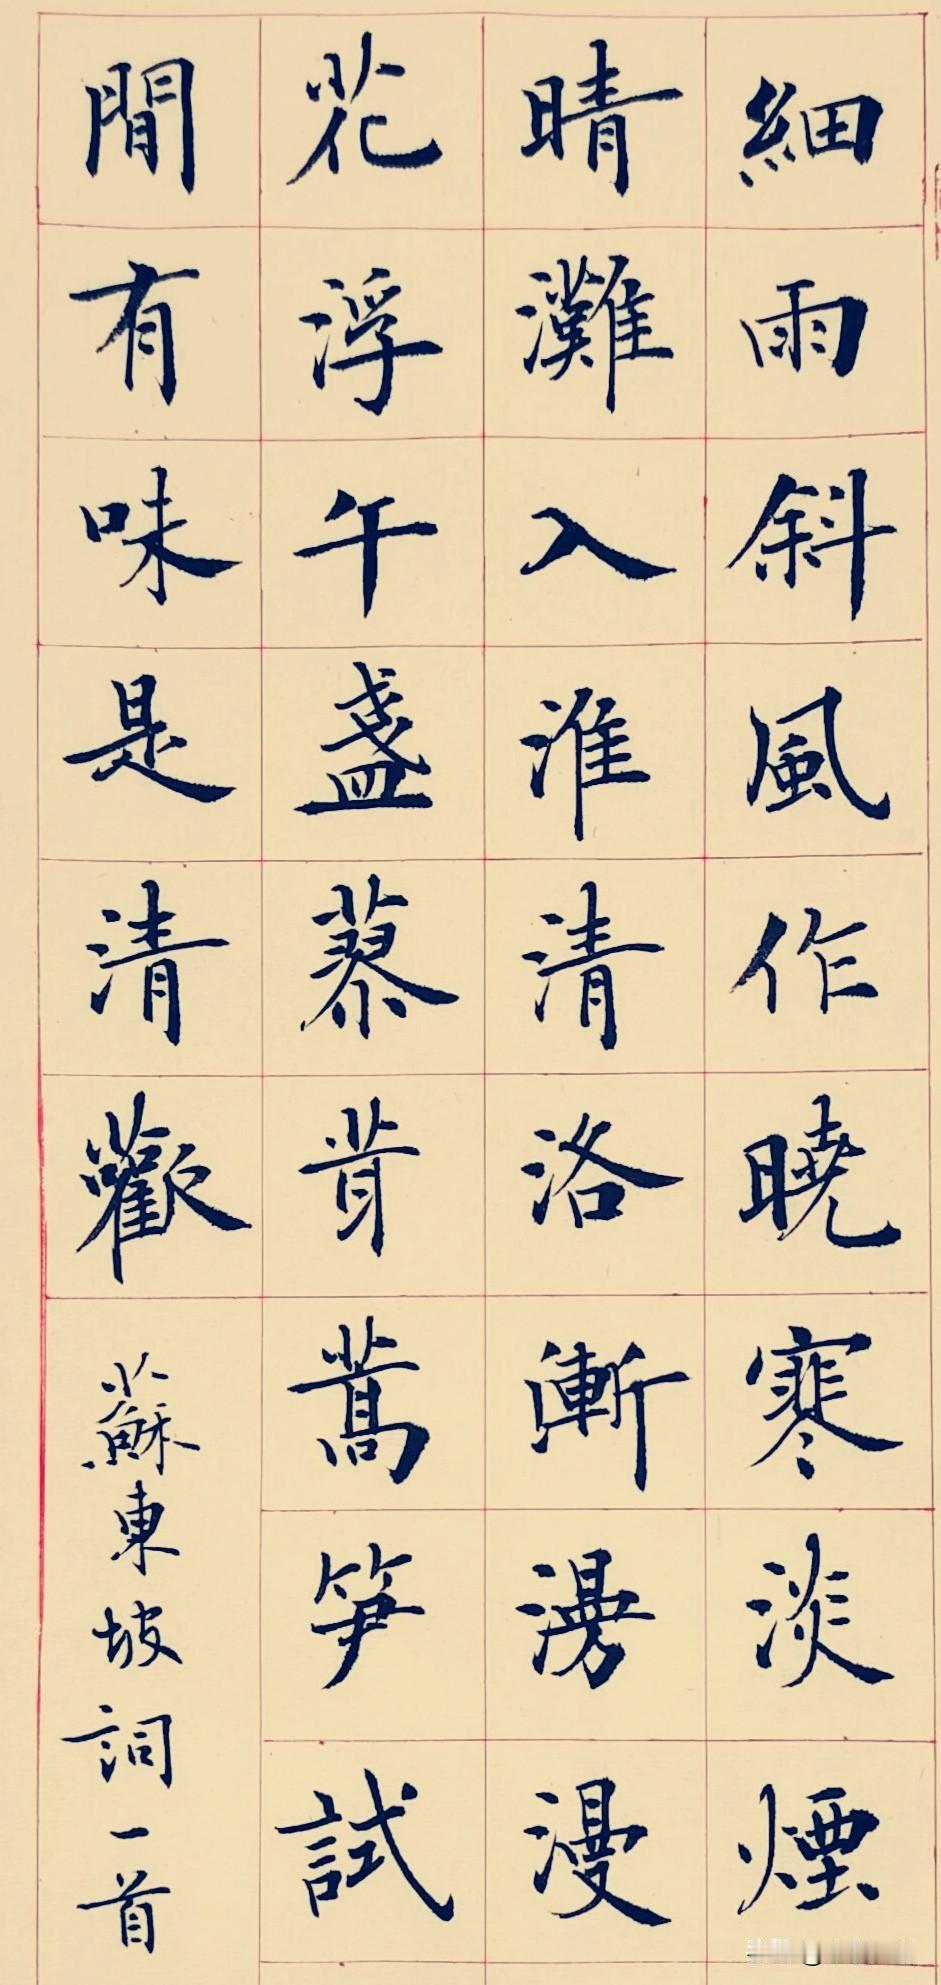 細雨斜風作曉寒淡煙
晴灘入淮清洛漸漫漫
花浮午盞蓼茸蒿笋試
間有味是清歡
蘇東坡詞一首